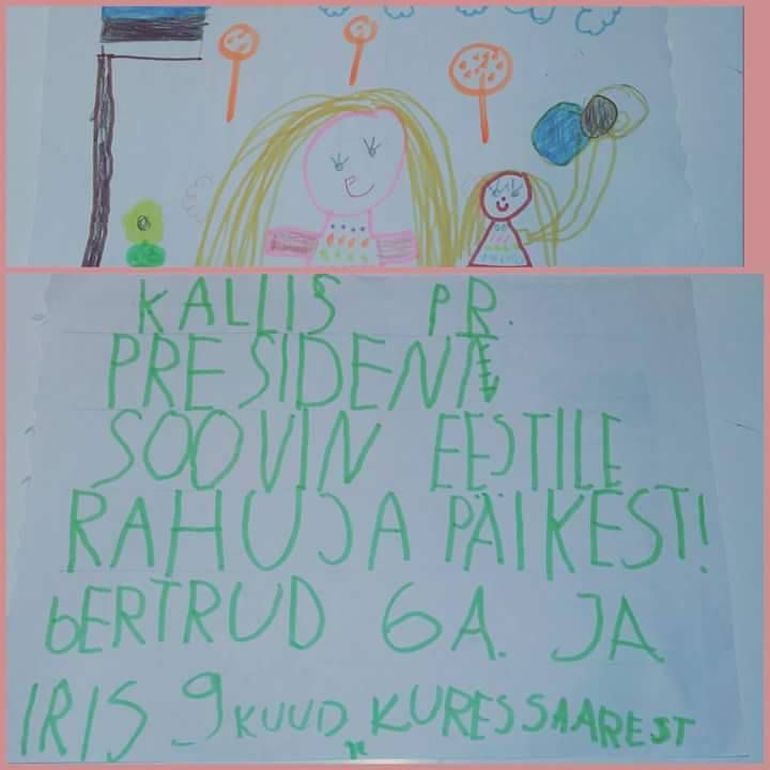 KALLIS PR.
PRESIDENT
SOOVIN EESTILE
RAHU JA PÄIKEST!
bERTRUD 6A. JA
IRIS 9 KUUD, KURESSAAREST